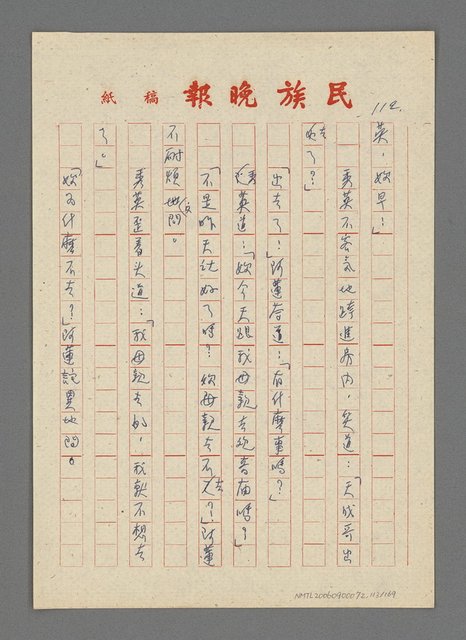 民族晚報 稿紙
112.
英，妳早！」
秀英不客氣地跨進房內，笑道：「天成哥出
去了？」
「出去了！」阿蓮答道：「有什麼事嗎？」
秀英道：「妳今天跟我母親去觀音廟嗎？」
「不是昨天說好了嗎？妳母親去不去？」阿蓮
不耐煩地問。
秀英歪着頭道：「我母親去的，我就不想去
了。」
「妳為什麼不去？」阿蓮詫異地問。
NMTL20060900072, 113/169